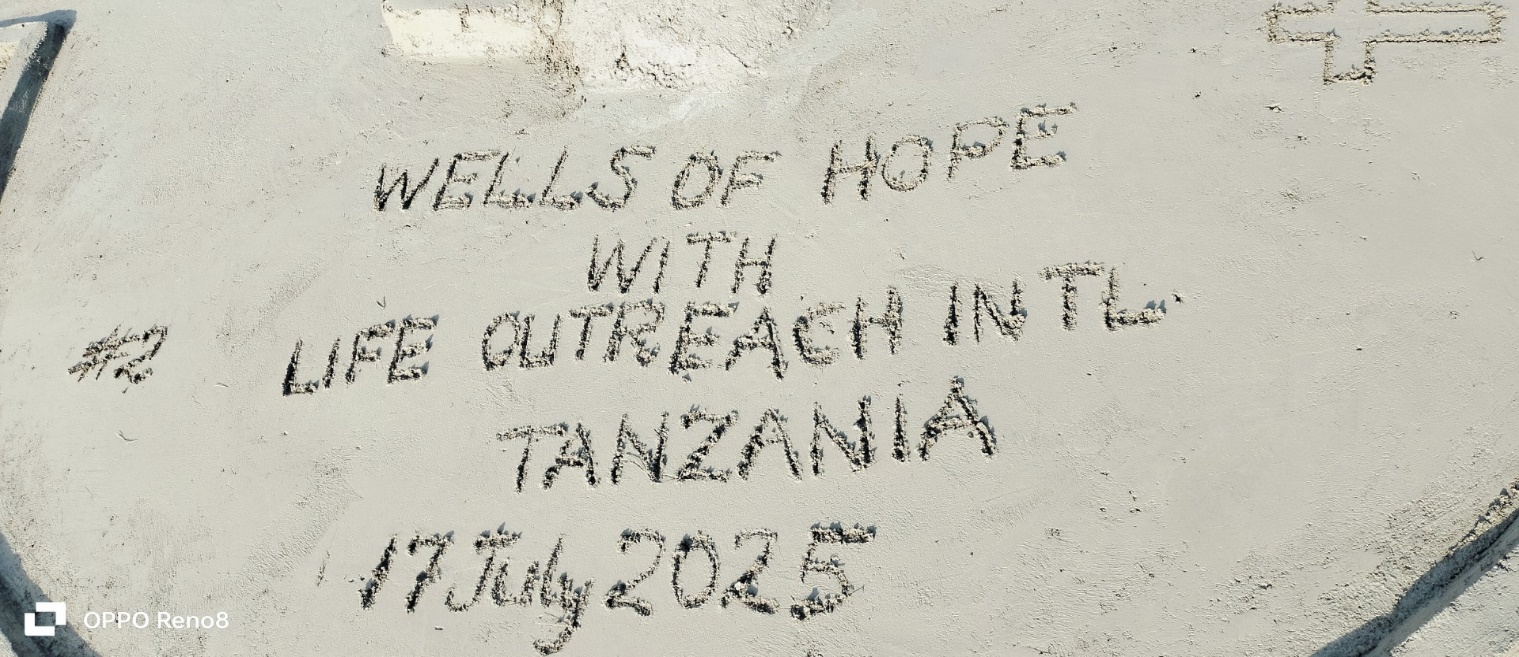 WELLS OF HOPE
WITH
#2 LIFE OUTREACH INTL.
TANZANIA
17 July 2025
OPPO Reno8